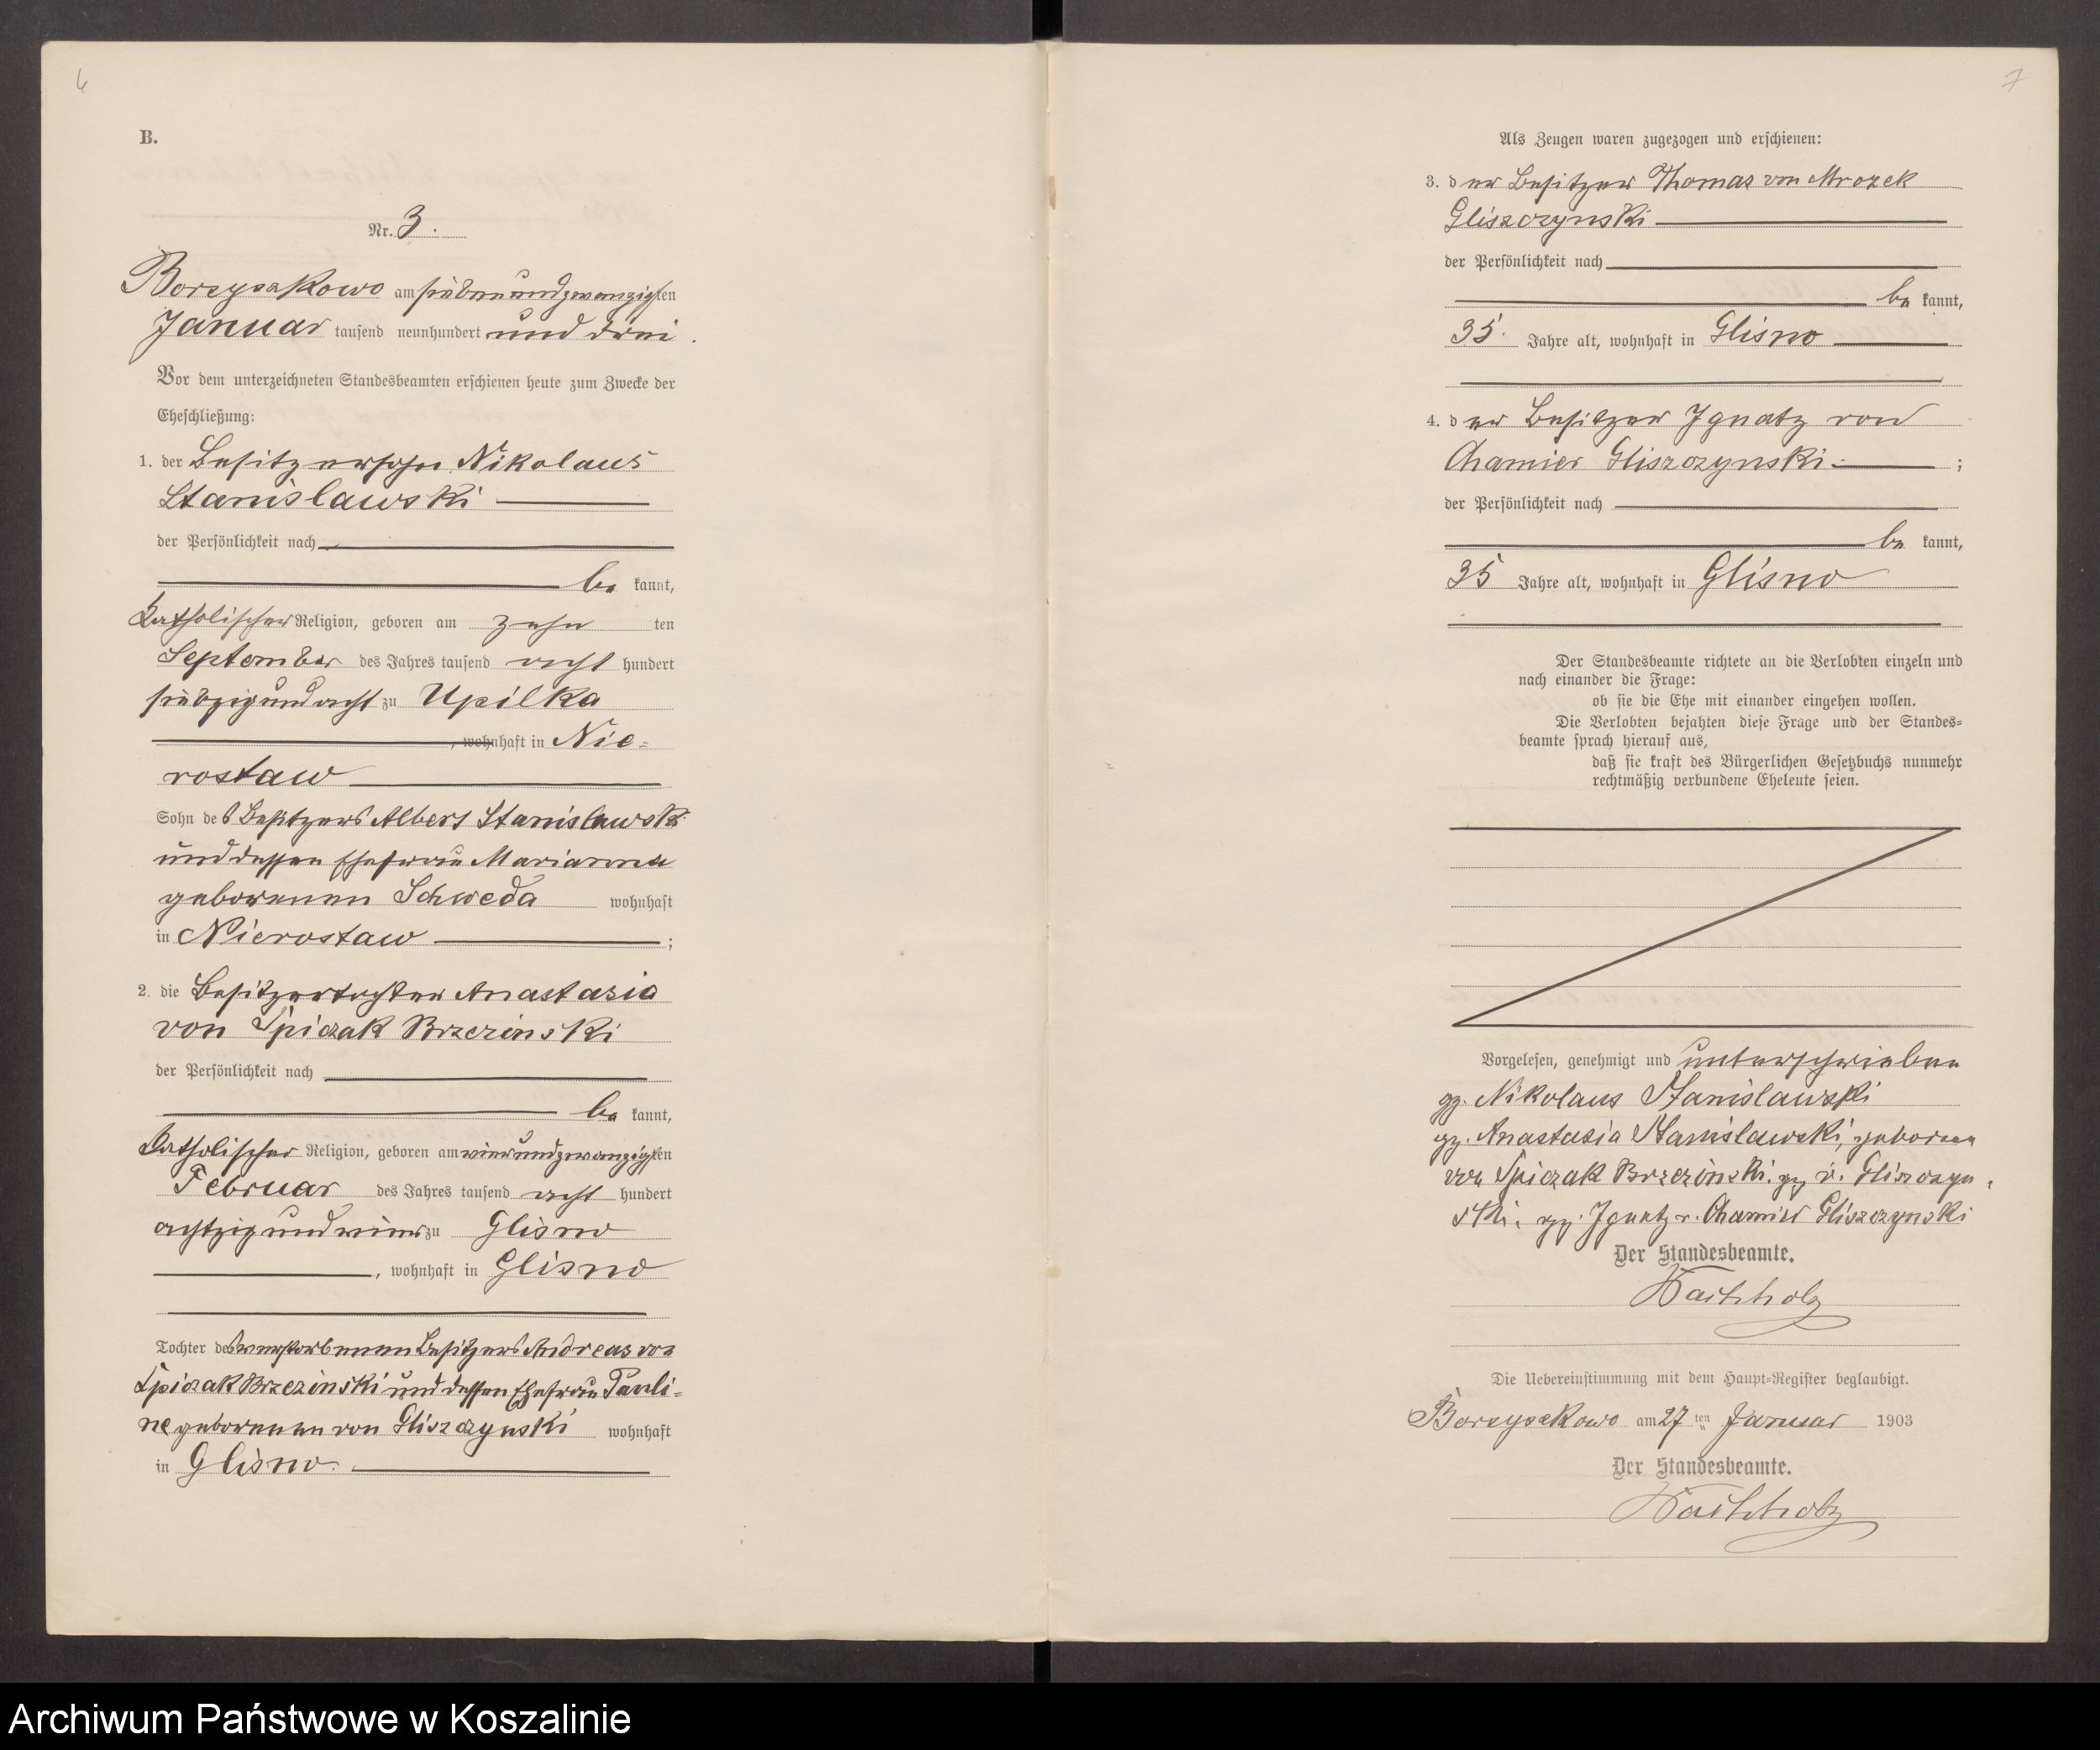 6
B.
Nr. 3.
Borzyszkowo am siebenundzwanzigsten
Januar tausend neunhundert und drei.
Vor dem unterzeichneten Standesbeamten erschienen heute zum Zwecke der
Eheschließung:
1. der Besitzersohn Nikolaus
Stanislawski
der Persönlichkeit nach
be kannt,
katholischer Religion, geboren am zehn ten
September des Jahres tausend acht hundert
siebzig und acht zu Upilka
, wohnhaft in Nie-
rostaw
Sohn des Besitzers Albert Stanislawski
und dessen Ehefrau Marianna
geborenen Schweda wohnhaft
in Nierostaw ;
2. die Besitzertochter Anastasia
von Spiczak Brzezinski
der Persönlichkeit nach
be kannt,
katholischer Religion, geboren am vierundzwanzigsten
Februar des Jahres tausend acht hundert
achtzig und vier zu Glisno
, wohnhaft in Glisno
Tochter des verstorbenen Besitzers Andreas von
Spiczak Brzezinski und dessen Ehefrau Pauli-
ne geborenen von Gliszczynski wohnhaft
in Glisno.
7
Als Zeugen waren zugezogen und erschienen:
3. der Besitzer Thomas von Mrozek
Gliszczynski
der Persönlichkeit nach
be kannt,
35. Jahre alt, wohnhaft in Glisno
4. der Besitzer Ignatz von
Chamier Gliszczynski ;
der Persönlichkeit nach
be kannt,
35 Jahre alt, wohnhaft in Glisno
Der Standesbeamte richtete an die Verlobten einzeln und
nach einander die Frage:
ob sie die Ehe mit einander eingehen wollen.
Die Verlobten bejahten diese Frage und der Standes-
beamte sprach hierauf aus,
daß sie kraft des Bürgerlichen Gesetzbuchs nunmehr
rechtmäßig verbundene Eheleute seien.
Vorgelesen, genehmigt und unterschrieben
gz. Nikolaus Stanislawski
gz. Anastasia Stanislawski, geborene
von Spiczak Brzezinski. gz. v. Gliszczyn-
ski. gz. Ignatz v. Chamier Gliszczynski
Der Standesbeamte.
Wachholz
Die Uebereinstimmung mit dem Haupt-Register beglaubigt.
Borzyszkowo am 27 ten Januar 1903
Der Standesbeamte.
Wachholz
Archiwum Państwowe w Koszalinie